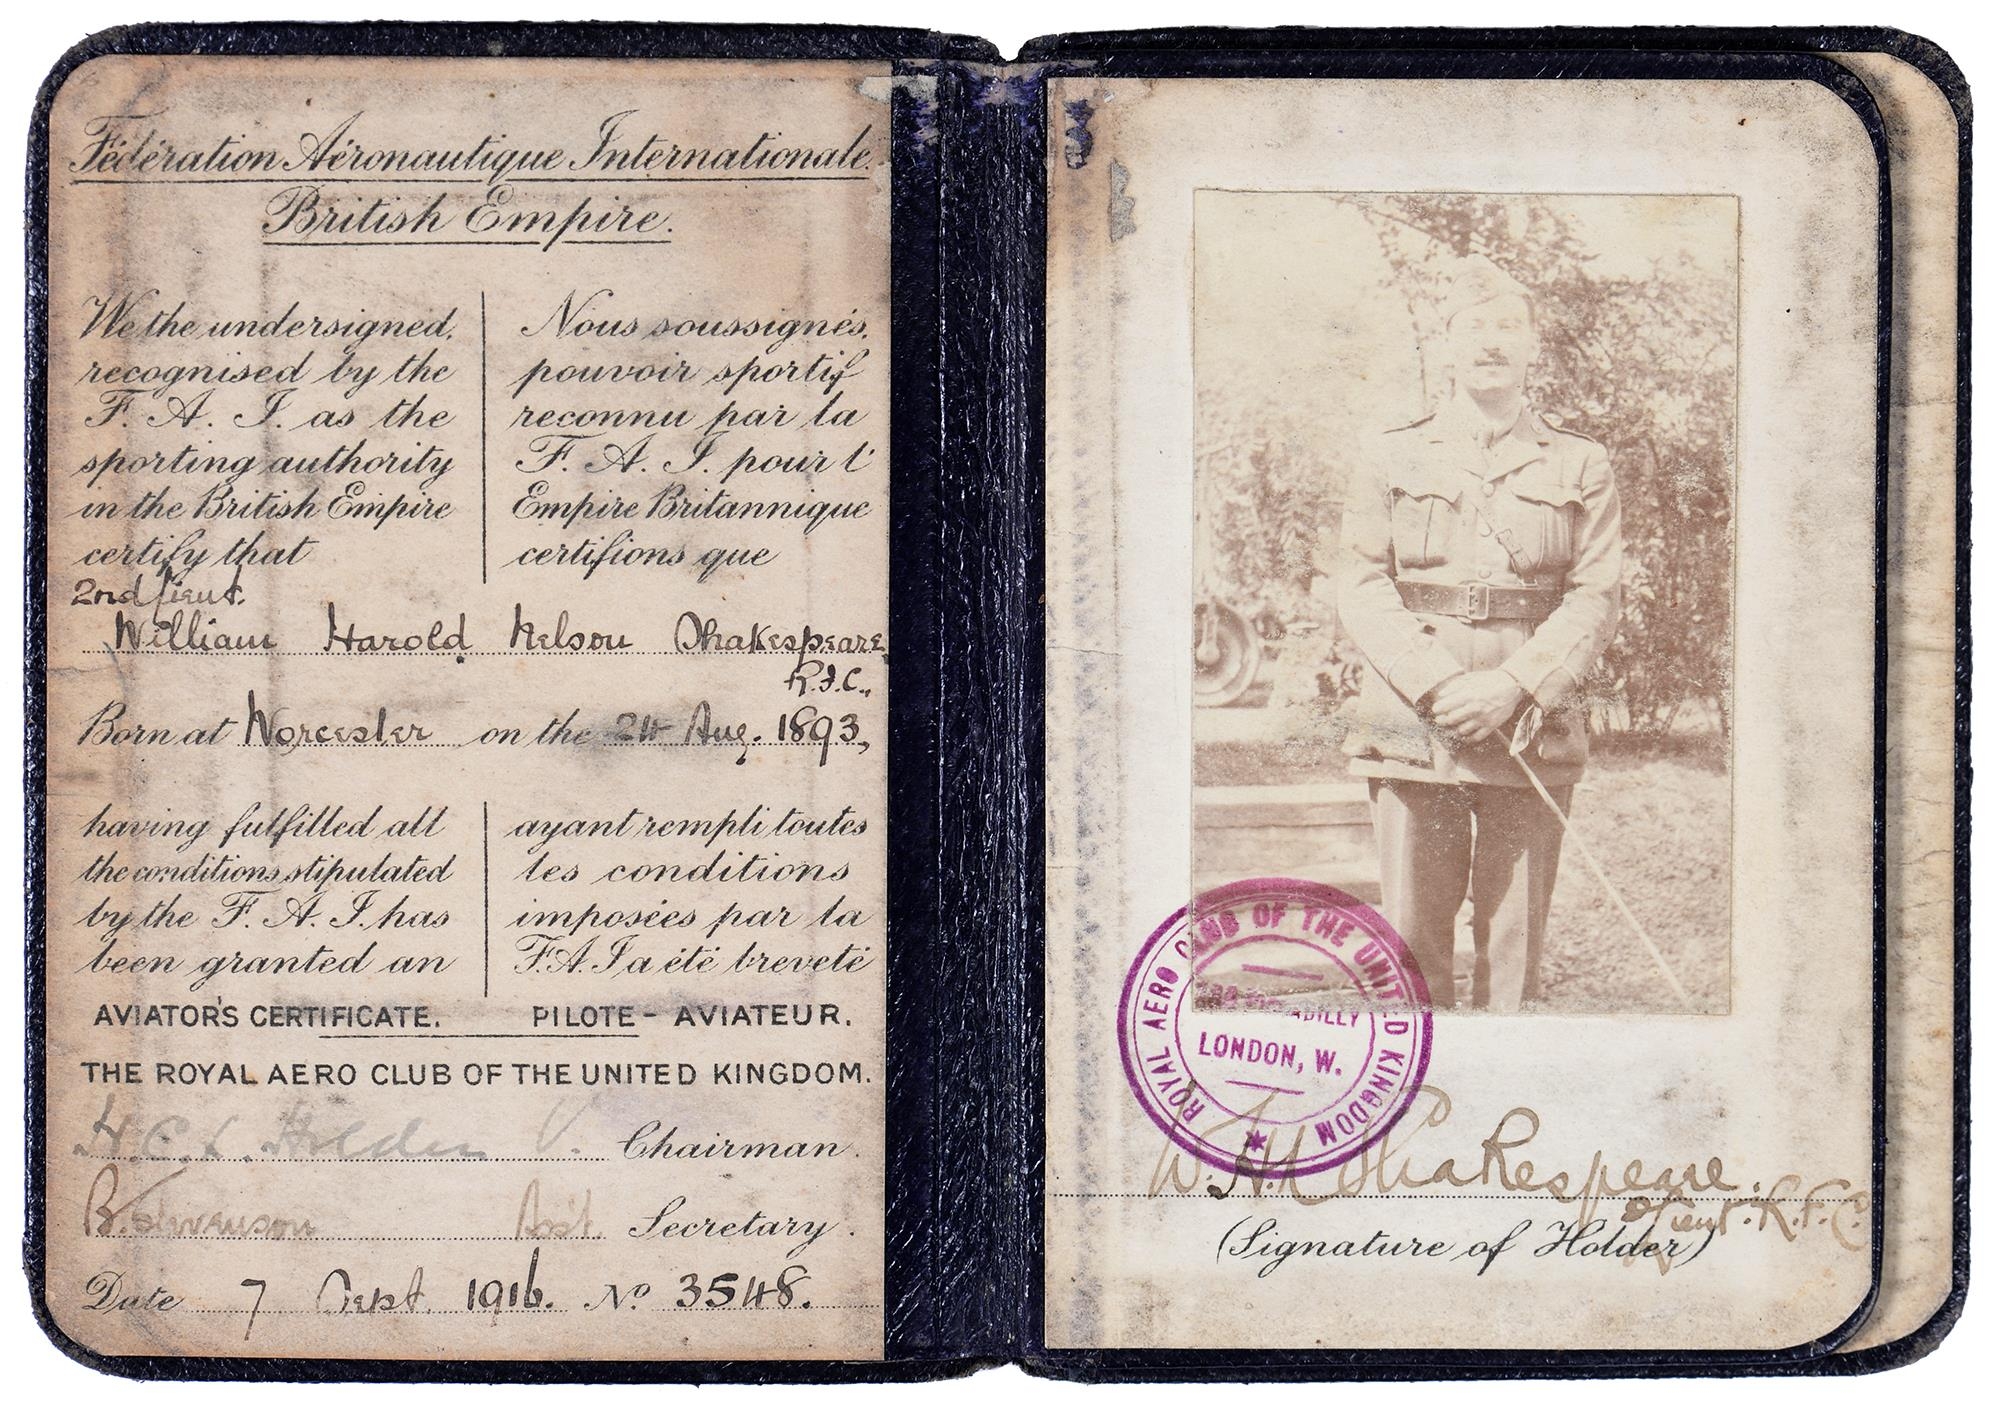 Fédération Aéronautique Internationale.
British Empire.
We the undersigned,
recognised by the
F. A. I. as the
sporting authority
in the British Empire
certify that
Nous soussignés,
pouvoir sportif
reconnu par la
F. A. I. pour l'
Empire Britannique
certifions que
2nd Lieut.
William Harold Nelson Shakespeare,
R.F.C.,
Born at Worcester on the 24 Aug. 1893,
having fulfilled all
the conditions stipulated
by the F. A. I. has
been granted an
ayant rempli toutes
les conditions
imposées par la
F.A.I a été breveté
AVIATOR'S CERTIFICATE. PILOTE - AVIATEUR.
THE ROYAL AERO CLUB OF THE UNITED KINGDOM.
H.C.L. Holden Chairman.
B. Stevenson Asst. Secretary.
Date 7 Sept. 1916. No 3548.
ROYAL AERO CLUB OF THE UNITED KINGDOM
PICCADILLY
LONDON, W.
W.H.N Shakespeare.
Lieut. R.F.C.
(Signature of Holder)